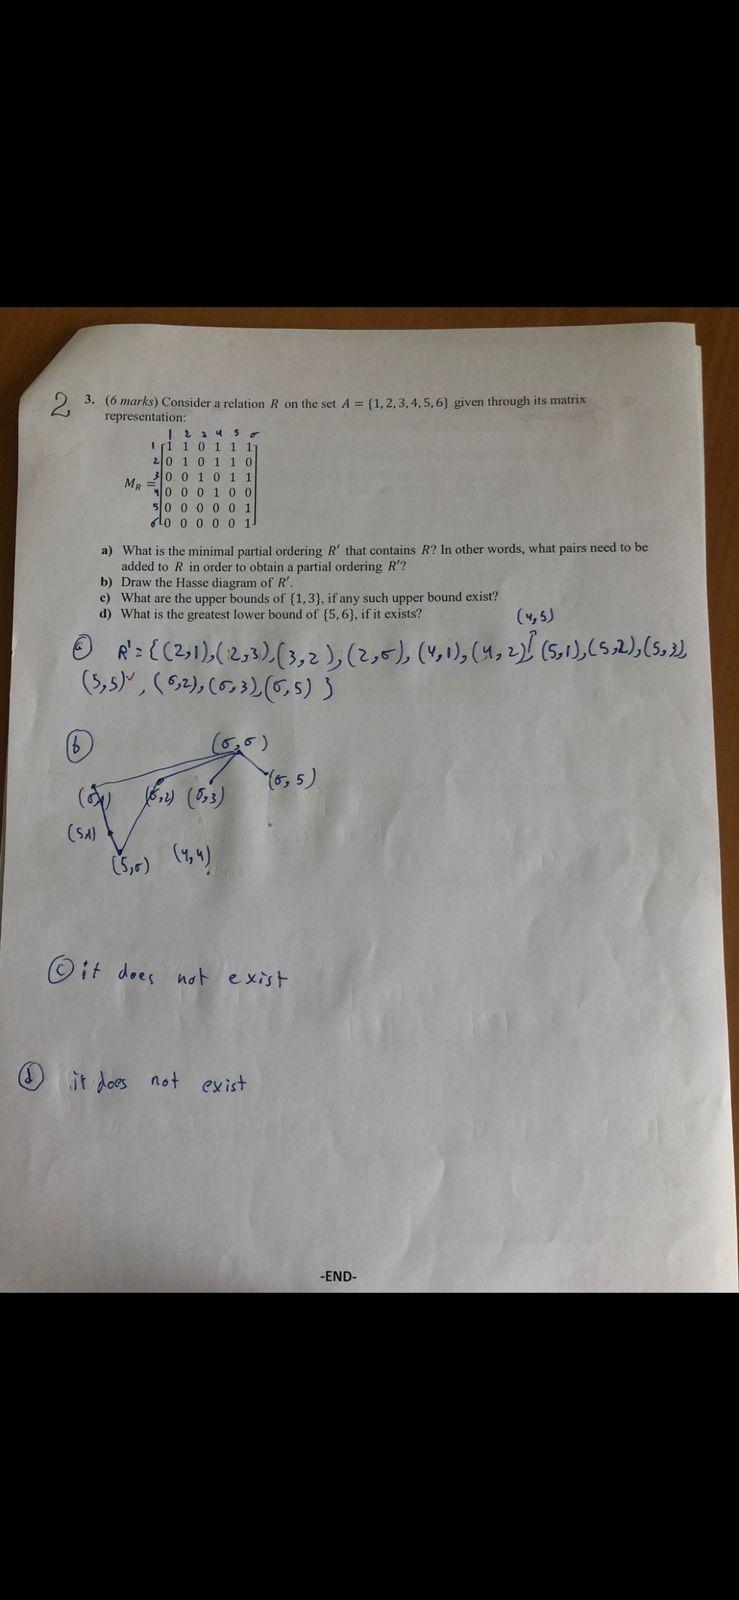 2
3. (6 marks) Consider a relation R on the set A = {1, 2, 3, 4, 5, 6} given through its matrix
representation:
1 2 3 4 5 6
1 1 1 0 1 1 1
2 0 1 0 1 1 0
3 0 0 1 0 1 1
M_R =
4 0 0 0 1 0 0
5 0 0 0 0 0 1
6 0 0 0 0 0 1
a) What is the minimal partial ordering R' that contains R? In other words, what pairs need to be
added to R in order to obtain a partial ordering R'?
b) Draw the Hasse diagram of R'.
c) What are the upper bounds of {1, 3}, if any such upper bound exist?
d) What is the greatest lower bound of {5, 6}, if it exists?
(4,5)
(a) R' = { (2,1), (2,3), (3,2), (2,6), (4,1), (4,2), (5,1), (5,2), (5,3),
(5,5) ✓, (6,2), (6,3), (6,5) }
(b) (6,6)
(6,1) (6,2) (6,3) (6,5)
(5,1)
(5,6) (4,4)
(c) it does not exist
(d) it does not exist
-END-